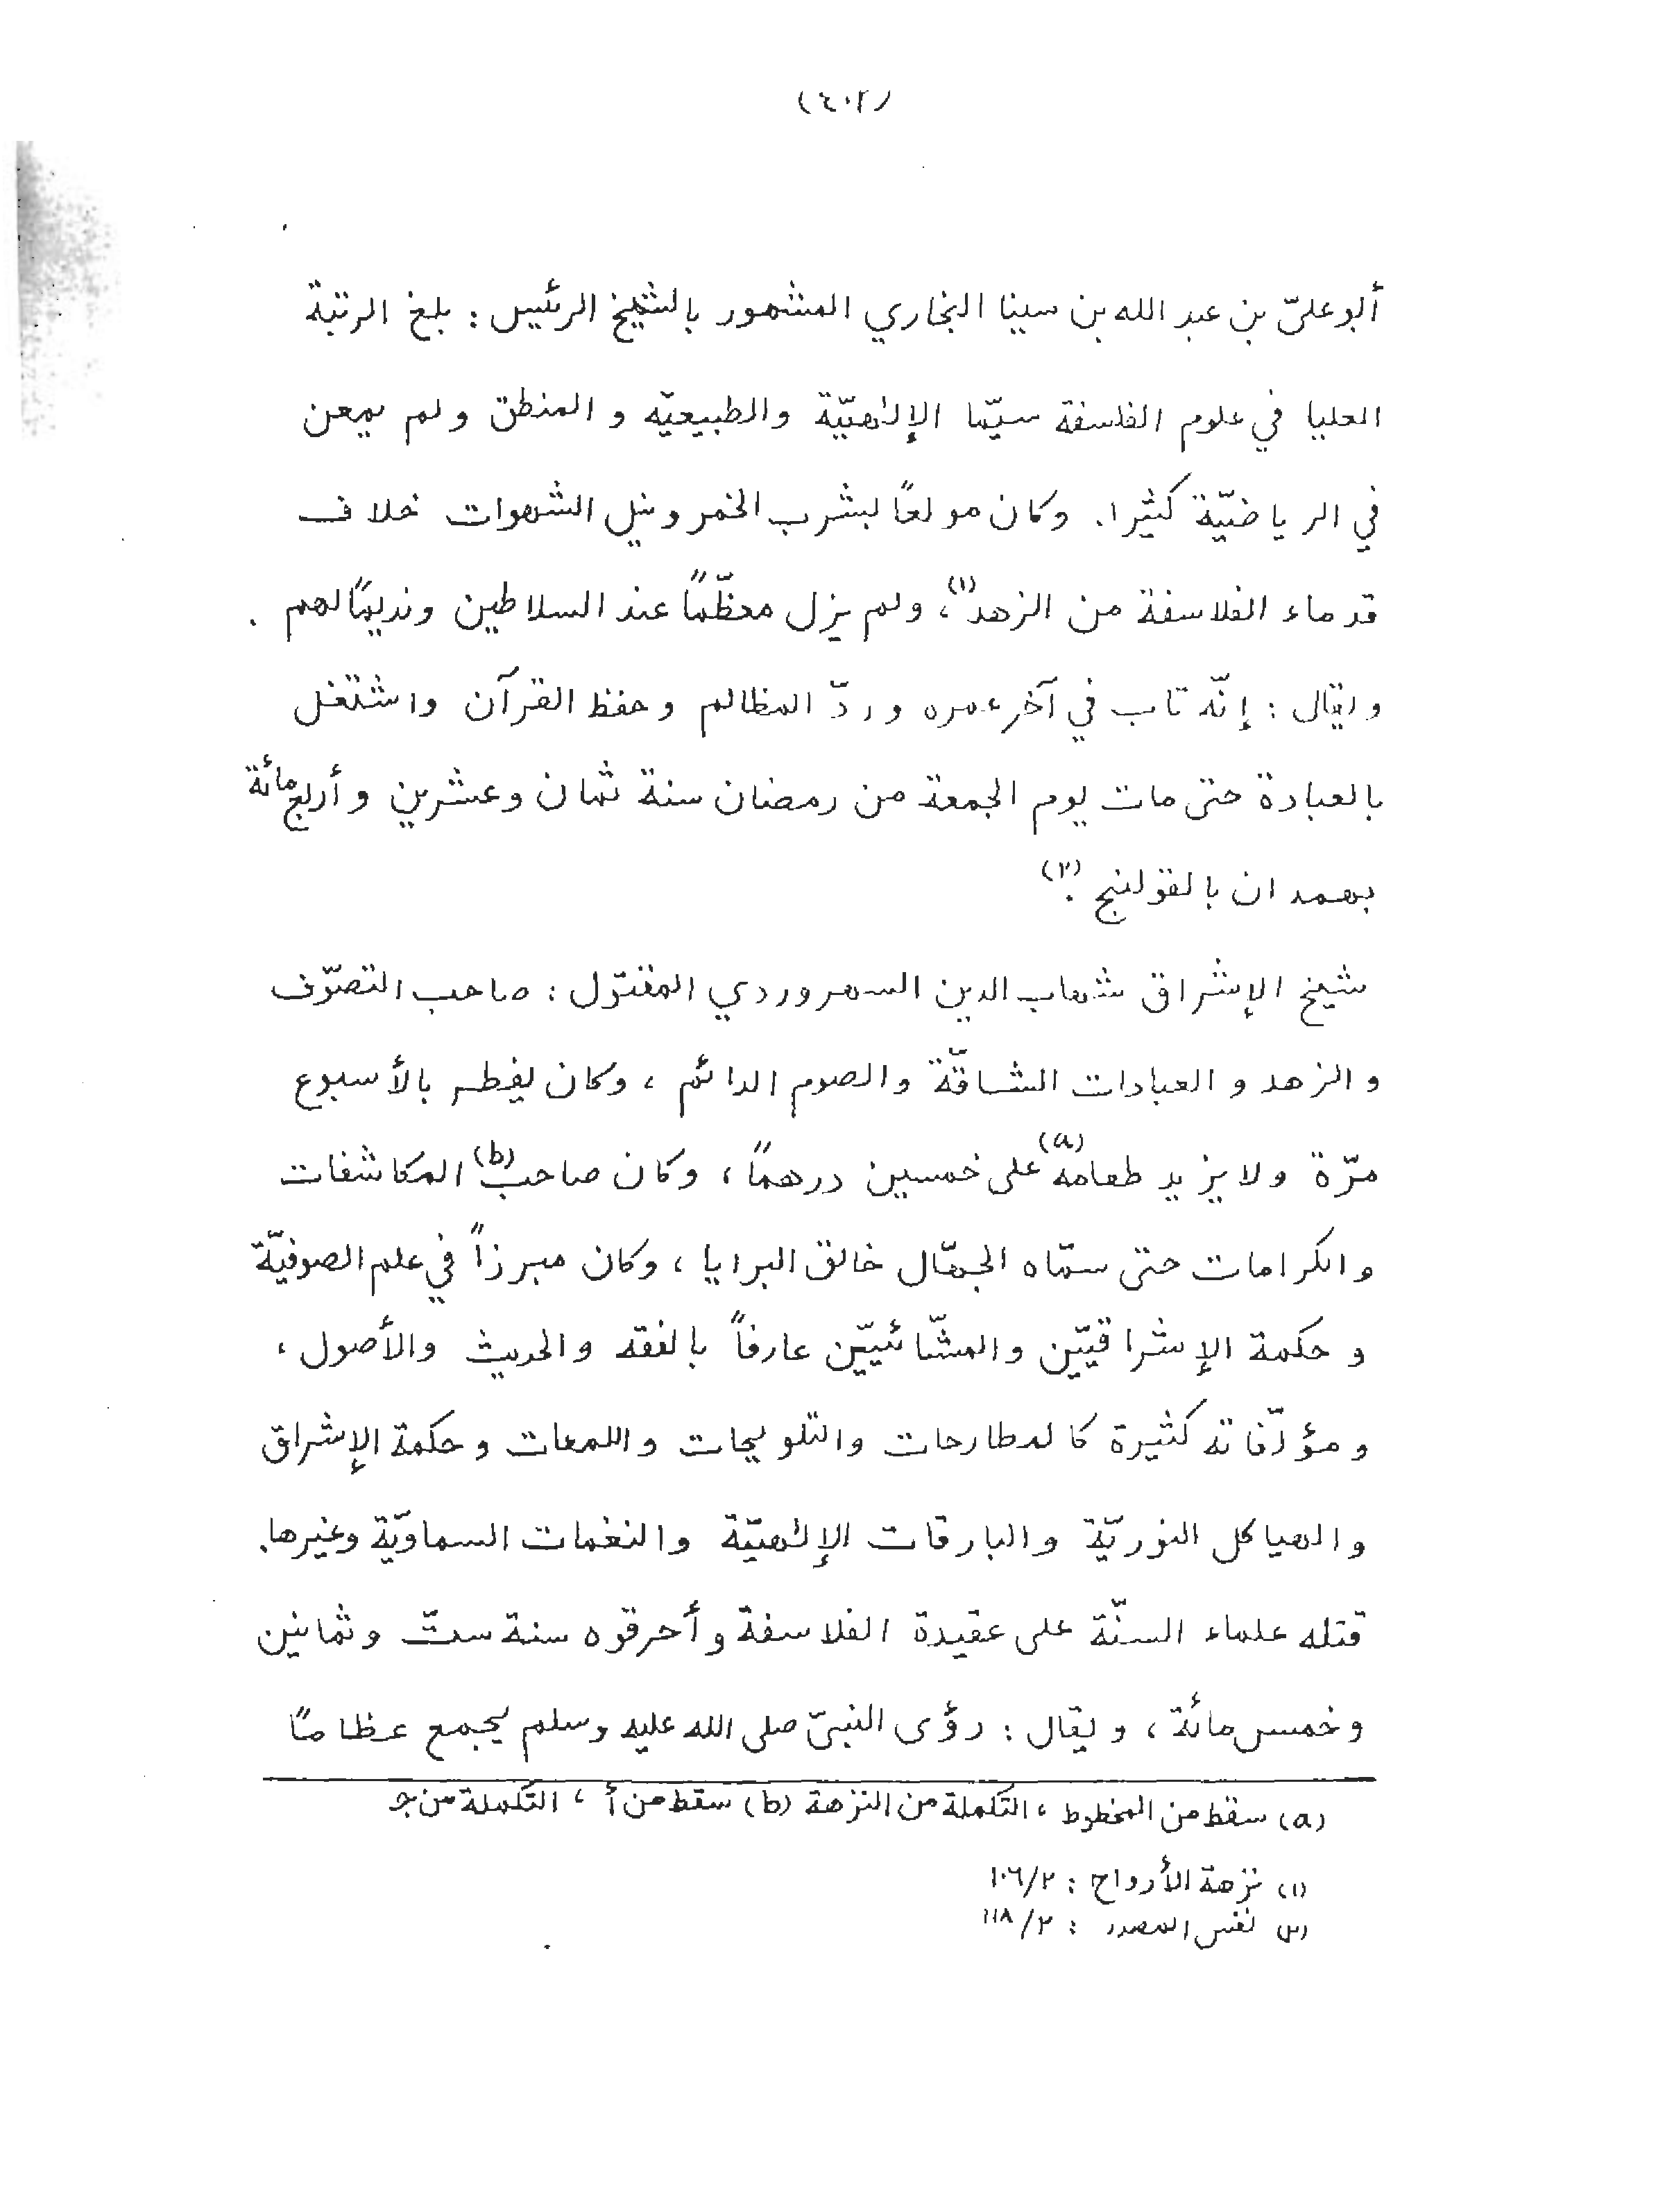 (٤٠٢)
أبو عليّ بن عبد الله بن سينا البخاري المشهور بالشيخ الرئيس : بلغ الرتبة
العليا في علوم الفلسفة سيّما الإلٰهيّة والطبيعيّه و المنطق ولم يمعن
في الرياضيّة كثيرا. وكان مولعًا بشرب الخمر ونيل الشهوات خلاف
قدماء الفلاسفة من الزهد(١)، ولم يزل معظّمًا عند السلاطين ونديمًا لهم .
ويقال : إنّه تاب في آخر عمره وردّ المظالم وحفظ القرآن واشتغل
بالعبادة حتى مات يوم الجمعة من رمضان سنة ثمان وعشرين وأربع مائة
بهمدان بالقولنج (٢).
شيخ الإشراق شهاب الدين السهروردي المقتول : صاحب التصوّف
والزهد والعبادات الشاقّة والصوم الدائم ، وكان يفطر بالأسبوع
مرّة ولا يزيد طعامه(a) على خمسين درهمًا ، وكان صاحب(b) المكاشفات
والكرامات حتى سمّاه الجهّال خالق البرايا ، وكان مبرزاً في علم الصوفيّة
وحكمة الإشراقيّين والمشّائييّن عارفاً بالفقه والحديث والأصول ،
ومؤلّفاته كثيرة كالمطارحات والتلويحات واللمعات وحكمة الإشراق
والهياكل النوريّة والبارقات الإلٰهيّة والنغمات السماويّة وغيرها.
قتله علماء السنّة على عقيدة الفلاسفة وأحرقوه سنة ستّ وثمانين
وخمس مائة ، ويقال : رؤى النبيّ صلى الله عليه وسلم يجمع عظامًا
(a) سقط من المخطوط ، التكملة من النزهة (b) سقط من أ ، التكملة من ج
(١) نزهة الأرواح : ١٠٦/٢
(٢) نفس المصدر : ١١٨/٢